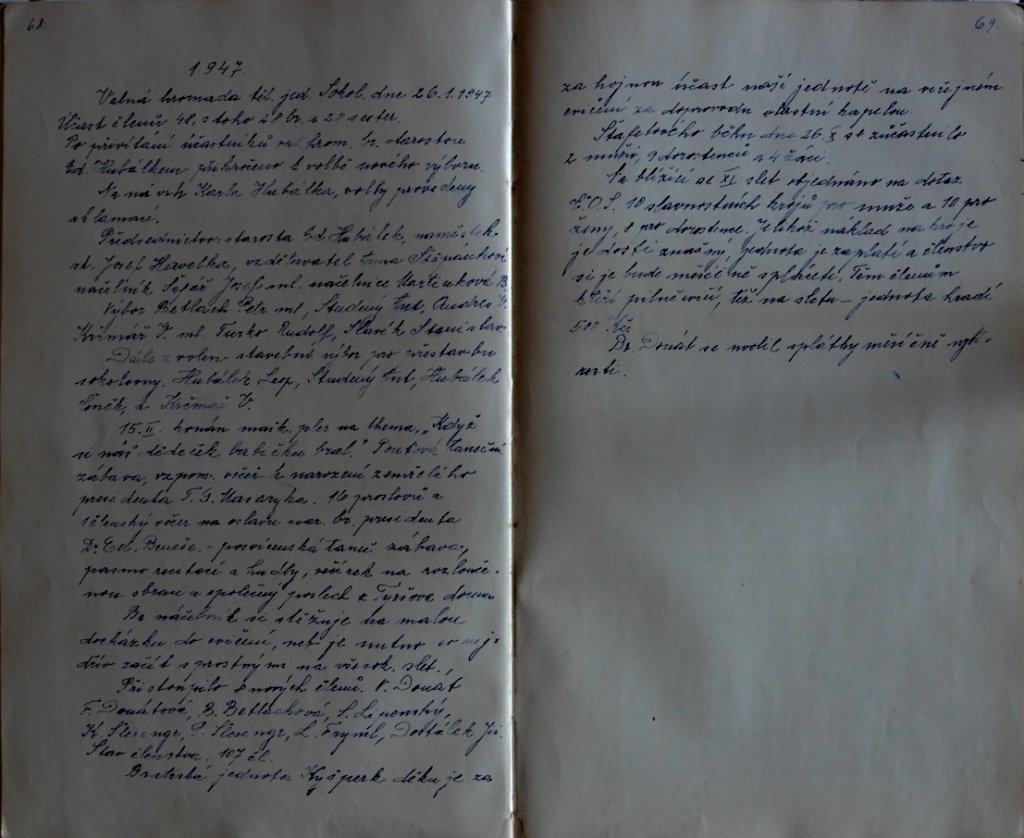 68
1947.
Valná hromada těl. jed. Sokol. dne 26.1.1947
Účast členů 48. z toho 28 br. a 20 sester.
Po přivítání účastníků val. hrom. br. starostou
Ed. Hubálkem, překročeno k volbě nového výboru.
Na návrh Karla Hubálka, volby provedeny
aklamací.
Předsednictvo: starosta Ed. Hubálek, náměstek.
st. Josef Havelka, vzdělavatel Anna
náčelník Josef ml. náčelnice B.
Výbor Betlach Petr ml, Studený Ant, Andres V.
Krčmář V. ml. Rudolf, Slavík Stanislav
Dále zvolen stavební výbor pro přestavbu
sokolovny. Hubálek Studený Ant, Hubálek
Čeněk, a Krčmář V.
15.II. konán mašk. ples na thema, „Když
si náš dědeček babičku bral." Pouťová taneční
zábava, vzpom. večer k narození zemřelého
presidenta T. G. Masaryka. 16 proslovů a
1 členský večer na oslavu nar. br. presidenta
Dr Ed. Beneše. - posvícenská taneč zábava,
pásmo recitací a hudby, večírek na rozlouče-
nou a společný poslech z Tyršova domu
Br náčelník si stěžuje na malou
docházku do cvičení, neb je nutno co nej-
dřív začít s prostnými na všesok. slet.,
Přistoupilo 8 nových členů. V. Donát
F. Donátová, B. Betlachová, S. Lipenský,
K. Šlesingr, P. Šlesingr, L. Frýml, Dostálek Jiř.
Stav členstva. 107 čl.
Bratrská jednota Kyšperk děkuje za
69.
za hojnou účast naší jednotě na veřejném
cvičení za doprovodu vlastní kapelou.
Štafetového běhu dne 26.X se zúčastnilo
2 muži, 9 dorostenců a 4 žáci.
Na blížící se XI slet objednáno na dotaz
Č.O.S. 10 slavnostních krojů pro muže a 10 pro
ženy, pro dorostence. Jelikož náklad na kroje
je dosti značný, jednota je zaplatí a členstvo
si je bude měsíčně spláceti. Těm členům
kteří pilně cvičí, též na sletu - jednota hradí
500 Kčs
Br. Donát se uvolil splátky měsíčně vybí-
rati.